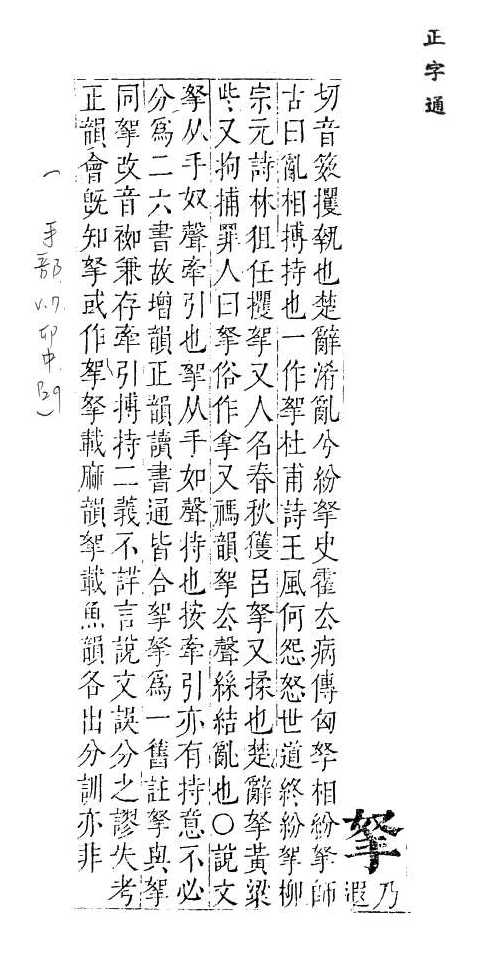 正字通
拏乃遐
切音䇲攫𢩧也楚辭淆亂兮紛拏史霍去病傳匈拏相紛拏師
古曰亂相搏持也一作挐杜甫詩王風何怨怒世道終紛挐柳
宗元詩林狙任攫挐又人名春秋獲呂拏又揉也楚辭拏黃粱
些又拘捕罪人曰拏俗作拿又禡韻挐去聲絲結亂也○說文
拏从手奴聲牽引也挐从手如聲持也按牽引亦有持意不必
分為二六書故增韻正韻讀書通皆合挐拏為一舊註拏與挐
同挐改音袽兼存牽引搏持二義不詳言說文誤分之謬失考
正韻會旣知拏或作挐拏載麻韻挐載魚韻各出分訓亦非
(手部.V.7.卯中.B9)